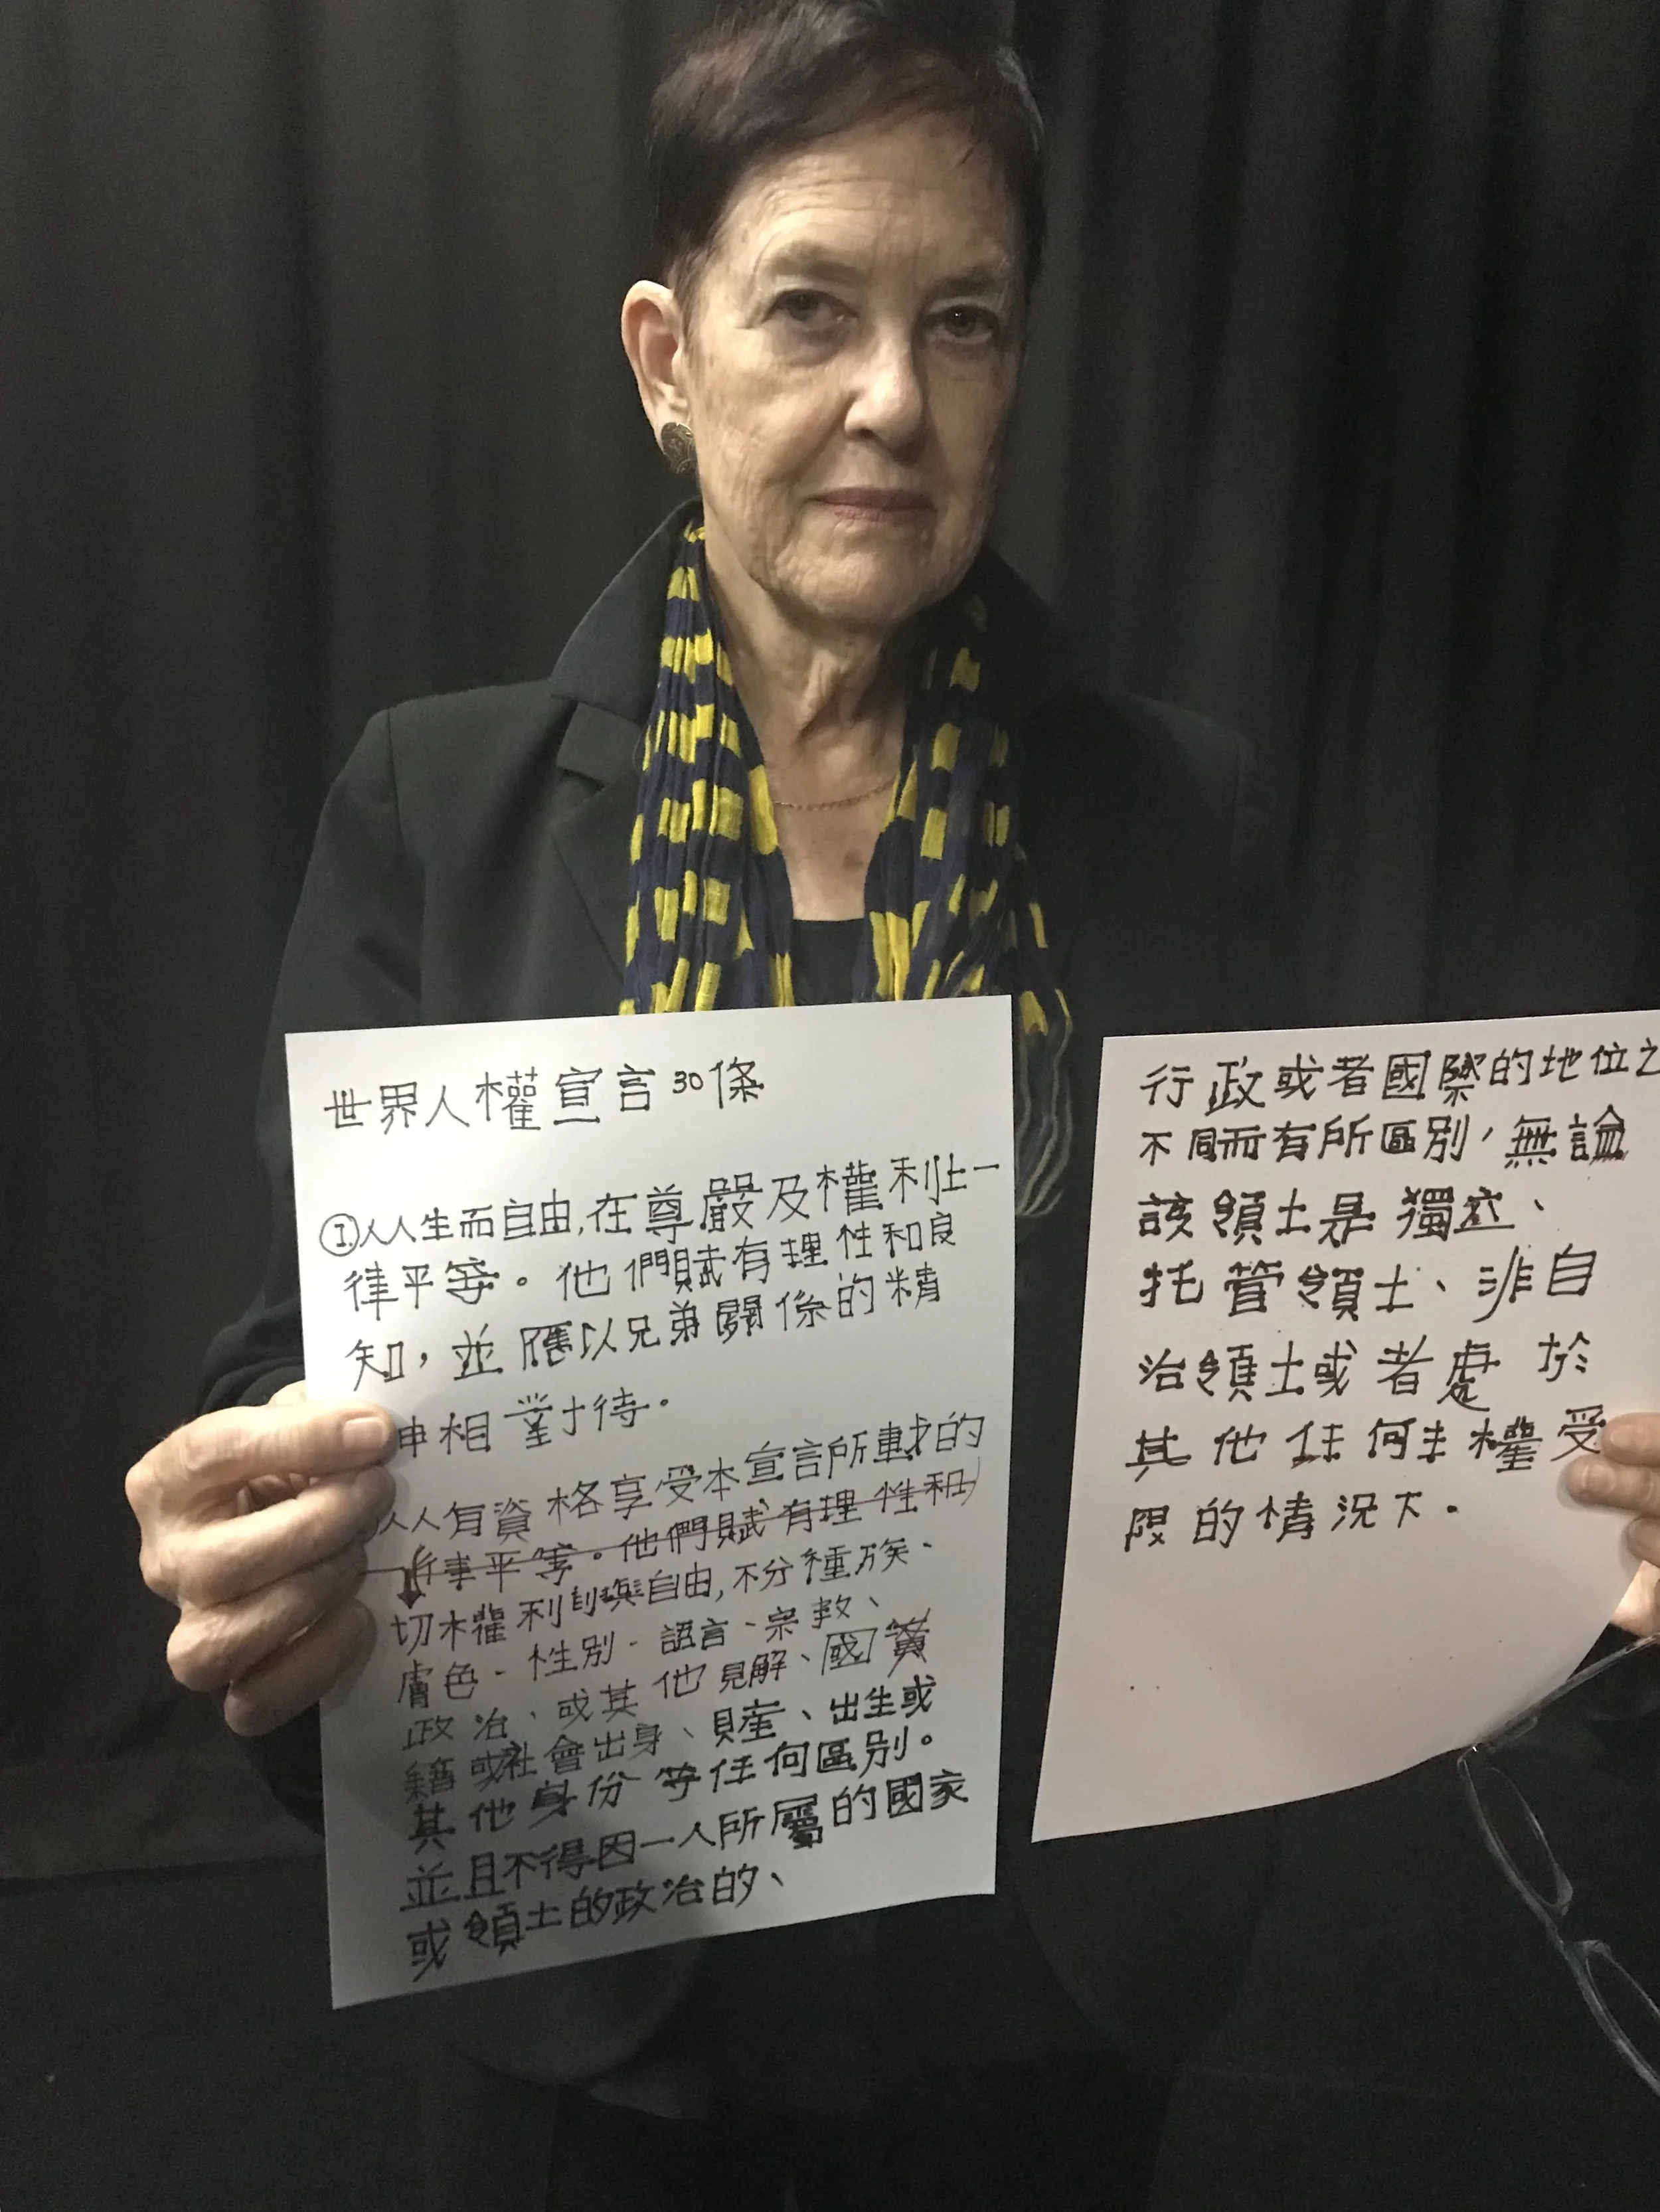 世界人權宣言30條
①人人生而自由,在尊嚴及權利壯一
律平等。他們賦有理性和良
知，並應以兄弟關係的精
申相對待。
人人有資格享受本宣言所載的
平等。他們賦有理性和
切權利與自由,不分種族、
膚色、性別、語言、宗教、
政治、或其他見解、國
籍或社會出身、財產、出生或
其他身份等任何區別。
並且不得因一人所屬的國家
或領土的政治的、
行政或者國際的地位之
不同而有所區別，無論
該領土是獨立、
托管領土、非自
治領土或者處於
其他任何主權受
限的情況下。